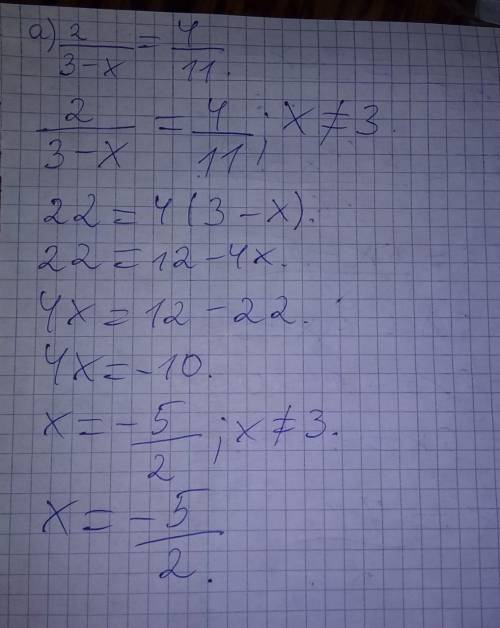 а) 2/(3-x) = 4/11.
2/(3-x) = 4/11; x ≠ 3.
22 = 4(3-x).
22 = 12-4x.
4x = 12-22.
4x = -10.
x = -5/2; x ≠ 3.
x = -5/2.